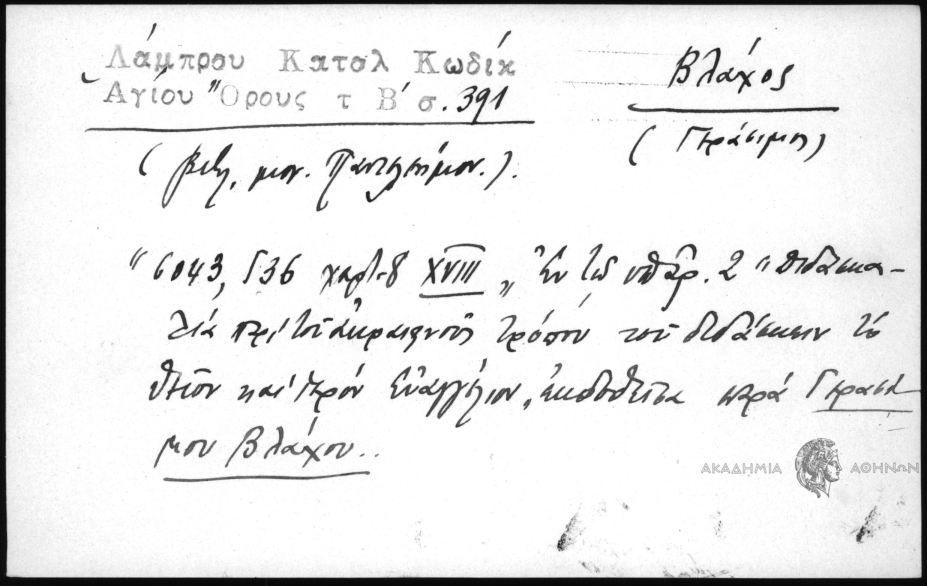 Λάμπρου Κατολ Κωδίκ
Ἁγίου Ὄρους τ Β΄ σ. 391
Βλάχος
(Γεράσιμος)
(βιβλ. μον. Παντελεήμον.).
"6043, 536 χαρτ. 8 XVIII „ Ἐν τῷ ὑπάρ. 2 "Διδασκα-
λία περὶ τοῦ ἀκραιφνοῦς τρόπου τοῦ διδάσκειν τὸ
θεῖον καὶ ἱερὸν Εὐαγγέλιον, ἐκδοθεῖσα παρὰ Γερασί
μου Βλάχου..
ΑΚΑΔΗΜΙΑ ΑΘΗΝΩΝ